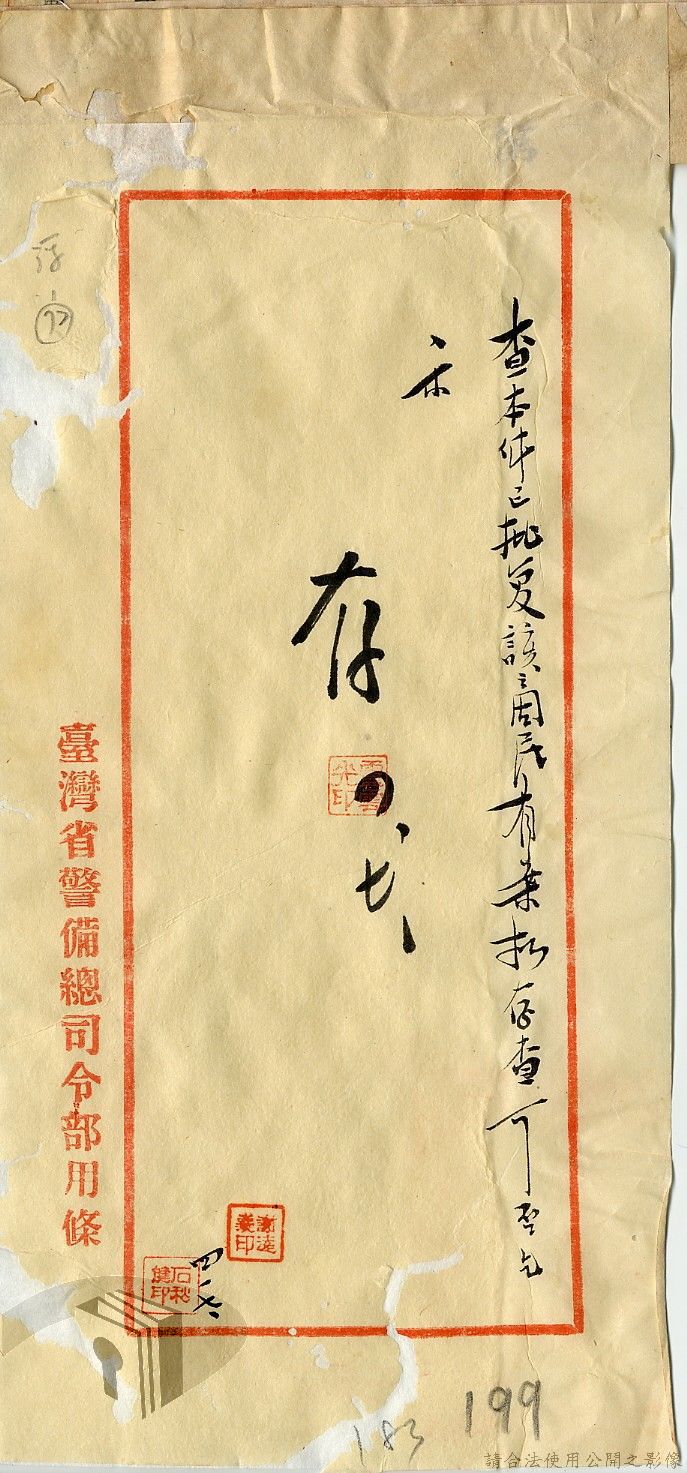 查本件已批复該商民有案擬存查可否乞
示
存
四、七
四、七
臺灣省警備總司令部用條
石秋健印
199
183
請合法使用公開之影像